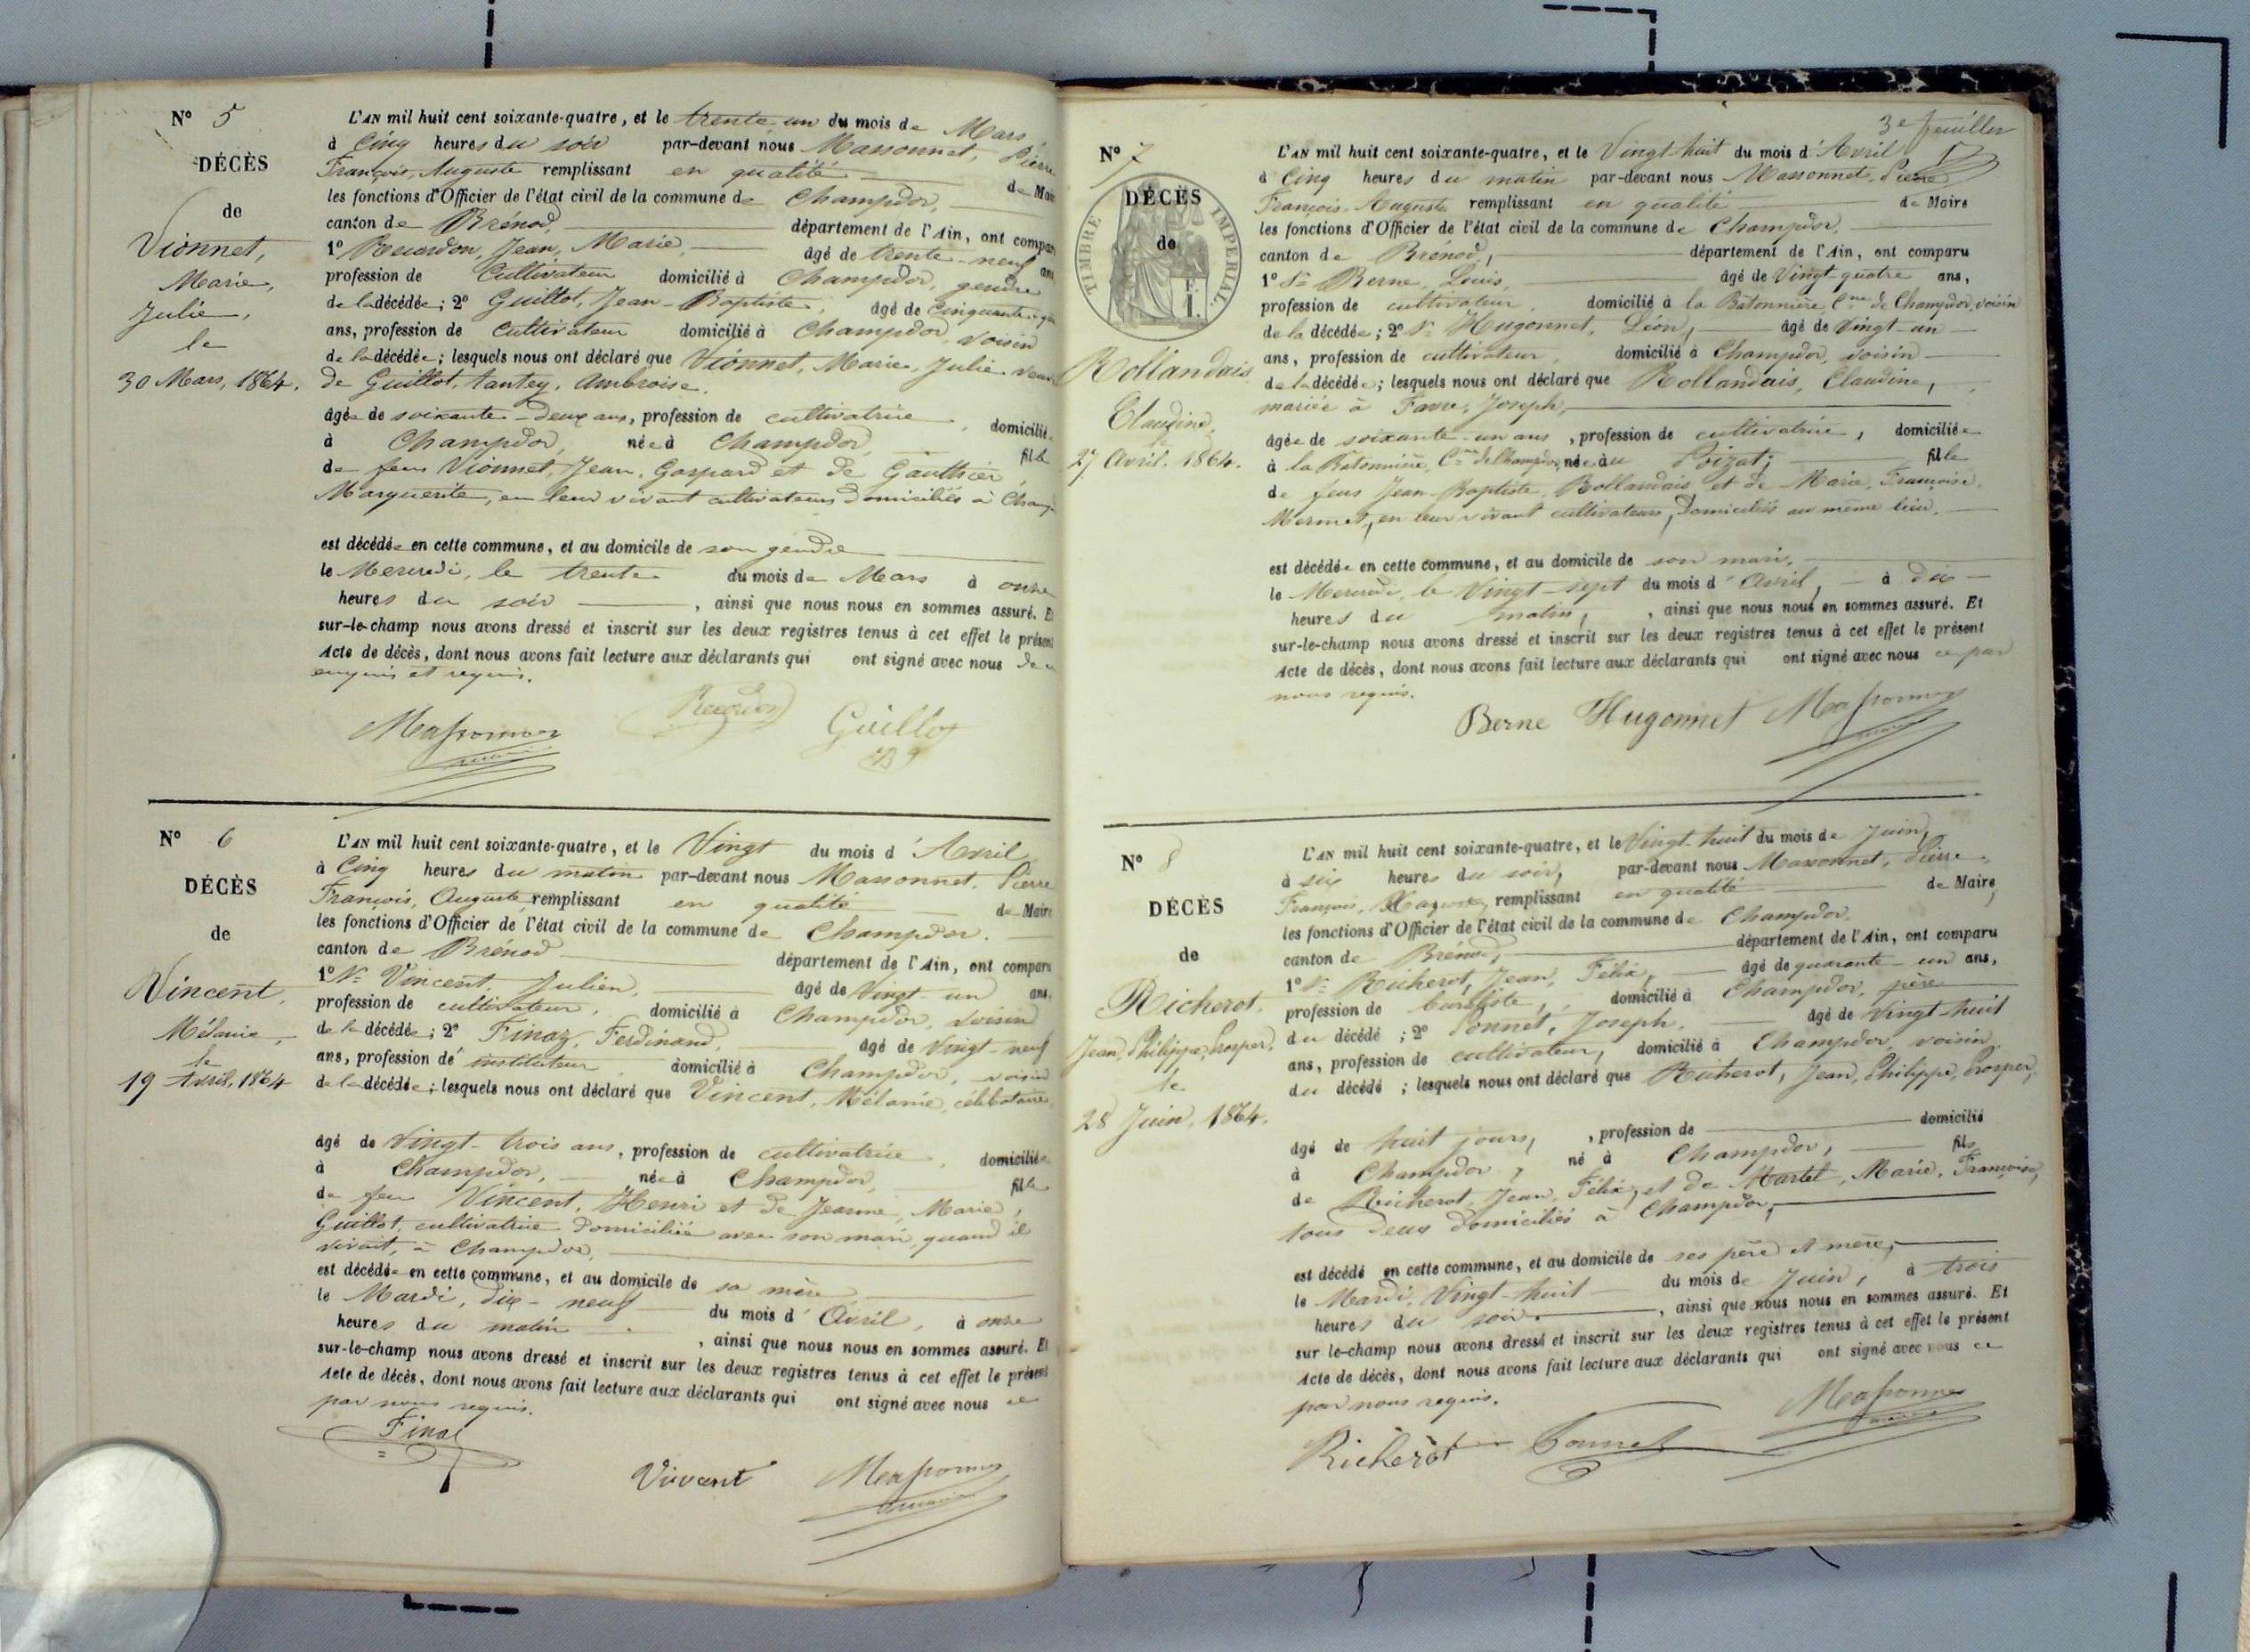 N° 5
DÉCÈS
de
Vionnet,
Marie,
Julie,
le
30 Mars, 1864.
L'AN mil huit cent soixante-quatre, et le trente un du mois de Mars
à Cinq heures du soir par-devant nous Massonnet, Pierre
François, Auguste remplissant en qualité de Maire
les fonctions d'Officier de l'état civil de la commune de Champdor,
canton de Brénod, département de l'Ain, ont comparu
1° Jean, Marie, âgé de trente-neuf ans
profession de Cultivateur domicilié à Champdor, gendre
de la décédée; 2° Guillot, Jean-Baptiste, âgé de cinquante
ans, profession de Cultivateur domicilié à Champdor, voisin
de la décédée; lesquels nous ont déclaré que Vionnet, Marie, Julie
de Guillot, tantey, Ambroise.
âgée de soixante-deux ans, profession de cultivatrice, domiciliée
à Champdor, née à Champdor, fille
de feus Vionnet, Jean, Gaspard et de Gauthier
Marguerite, en leur vivant cultivateurs domiciliés à
est décédée en cette commune, et au domicile de son gendre
le Mercredi, le trente du mois de Mars à onze
heures du soir, ainsi que nous nous en sommes assuré. Et
sur-le-champ nous avons dressé et inscrit sur les deux registres tenus à cet effet le présent
Acte de décès, dont nous avons fait lecture aux déclarants qui ont signé avec nous de ce
enquis et requis.
Massonnet Guillot
N° 6
DÉCÈS
de
Vincent,
Mélanie,
le
19 Avril, 1864
L'AN mil huit cent soixante-quatre, et le Vingt du mois d'Avril
à Cinq heures du matin par-devant nous Massonnet, Pierre
François, Auguste, remplissant en qualité de Maire
les fonctions d'Officier de l'état civil de la commune de Champdor.
canton de Brénod département de l'Ain, ont comparu
1° Sr Vincent, Julien, âgé de Vingt-un ans,
profession de cultivateur, domicilié à Champdor, voisin
de la décédée; 2° Finaz, Ferdinand, âgé de Vingt-neuf
ans, profession de instituteur domicilié à Champdor, voisin
de la décédée; lesquels nous ont déclaré que Vincent, Mélanie, célibataire
âgé de Vingt-trois ans, profession de cultivatrice, domiciliée
à Champdor, née à Champdor, fille
de feu Vincent, Henri et de Jeanne, Marie,
Guillot, cultivatrice domiciliée avec son mari, quand il
vivait, à Champdor,
est décédée en cette commune, et au domicile de sa mère
le Mardi, dix-neuf du mois d'Avril, à onze
heures du matin, ainsi que nous nous en sommes assuré. Et
sur-le-champ nous avons dressé et inscrit sur les deux registres tenus à cet effet le présent
Acte de décès, dont nous avons fait lecture aux déclarants qui ont signé avec nous ce
par nous requis.
Finaz
Massonnet
3e feuillet
N° 7
DÉCÈS
de
TIMBRE IMPÉRIAL.
Rollandais
Claudine,
le
27 Avril, 1864.
L'AN mil huit cent soixante-quatre, et le Vingt-huit du mois d'Avril
à Cinq heures du matin par-devant nous Massonnet, Pierre
François, Auguste remplissant en qualité de Maire
les fonctions d'Officier de l'état civil de la commune de Champdor,
canton de Brénod, département de l'Ain, ont comparu
1° Sr Berne, Louis, âgé de Vingt-quatre ans,
profession de cultivateur, domicilié à la Batonnière, Cne de Champdor, voisin
de la décédée; 2° Sr Hugonnet, Léon, âgé de Vingt-un
ans, profession de cultivateur, domicilié à Champdor, voisin
de la décédée; lesquels nous ont déclaré que Rollandais, Claudine,
mariée à Favre, Joseph,
âgée de soixante-un ans, profession de cultivatrice, domiciliée
à la Batonnière, Cne de Champdor, née au Poizat, fille
de feus Jean-Baptiste, Rollandais et de Marie, Françoise,
Mermet, en leur vivant cultivateurs, domiciliés au même lieu,
est décédée en cette commune, et au domicile de son mari,
le Mercredi, le Vingt-sept du mois d'Avril, à dix
heures du matin, ainsi que nous nous en sommes assuré. Et
sur-le-champ nous avons dressé et inscrit sur les deux registres tenus à cet effet le présent
Acte de décès, dont nous avons fait lecture aux déclarants qui ont signé avec nous ce par
nous requis.
Berne Hugonnet Massonnet
N° 8
DÉCÈS
de
Richerot,
Jean, Philippe, Prosper,
le
28 Juin, 1864.
L'AN mil huit cent soixante-quatre, et le Vingt-huit du mois de Juin,
à six heures du soir, par-devant nous Massonnet, Pierre,
François, Auguste, remplissant en qualité de Maire,
les fonctions d'Officier de l'état civil de la commune de Champdor.
canton de Brénod, département de l'Ain, ont comparu
1° Sr Richerot, Jean, Félix, âgé de quarante-un ans,
profession de buraliste, domicilié à Champdor, père
du décédé; 2° Sonnet, Joseph, âgé de Vingt-huit
ans, profession de cultivateur, domicilié à Champdor, voisin
du décédé; lesquels nous ont déclaré que Richerot, Jean, Philippe, Prosper,
âgé de huit jours, profession de domicilié
à Champdor, né à Champdor, fils
de Richerot, Jean, Félix, et de Martel, Marie, Françoise,
tous deux domiciliés à Champdor,
est décédé en cette commune, et au domicile de ses père et mère,
le Mardi, Vingt-huit du mois de Juin, à trois
heures du soir, ainsi que nous nous en sommes assuré. Et
sur-le-champ nous avons dressé et inscrit sur les deux registres tenus à cet effet le présent
Acte de décès, dont nous avons fait lecture aux déclarants qui ont signé avec nous ce
par nous requis.
Massonnet
Richerot